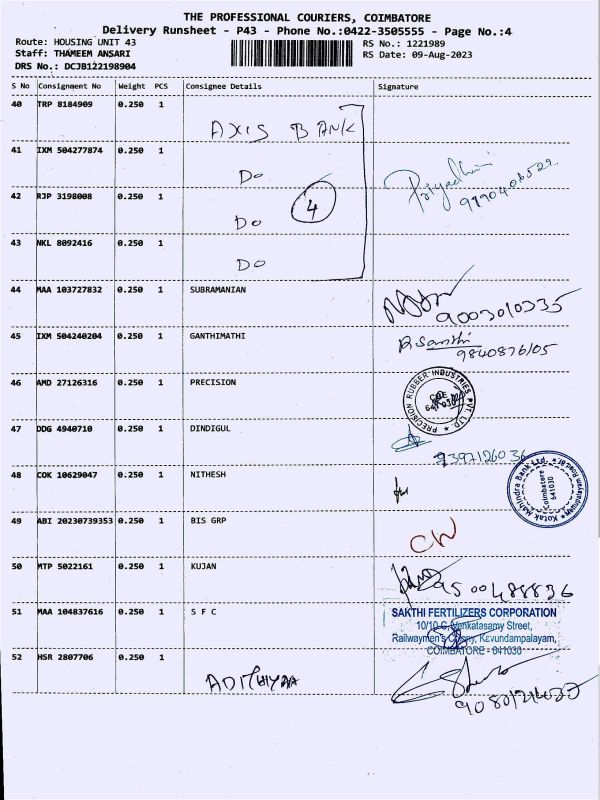 THE PROFESSIONAL COURIERS, COIMBATORE
Delivery Runsheet - P43 - Phone No.:0422-3505555 - Page No.:4
Route: HOUSING UNIT 43
RS No.: 1221989
Staff: THAMEEM ANSARI
RS Date: 09-Aug-2023
DRS No.: DCJB122198904
S No Consignment No Weight PCS Consignee Details Signature
40 TRP 8184909 0.250 1
AXIS BANK
41 IXM 504277874 0.250 1
Do
Priyadhini
42 RJP 3198008 0.250 1
4
Do
43 NKL 8092416 0.250 1
Do
44 MAA 103727832 0.250 1 SUBRAMANIAN
9003010335
45 IXM 504240204 0.250 1 GANTHIMATHI
R Santhi
9840876105
46 AMD 27126316 0.250 1 PRECISION
PRECISION RUBBER INDUSTRIES PVT. LTD.
47 DDG 4940710 0.250 1 DINDIGUL
9397126036
48 COK 10629047 0.250 1 NITHESH
Kotak Mahindra Bank Ltd.
Coimbatore
641030
49 ABI 20230739353 0.250 1 BIS GRP
CW
50 MTP 5022161 0.250 1 KUJAN
9500488836
51 MAA 104837616 0.250 1 S F C
SAKTHI FERTILIZERS CORPORATION
10/10-C, Venkatasamy Street,
Railwaymen's Colony, Kavundampalayam,
COIMBATORE - 641030
52 HSR 2807706 0.250 1
ADITHIYAA